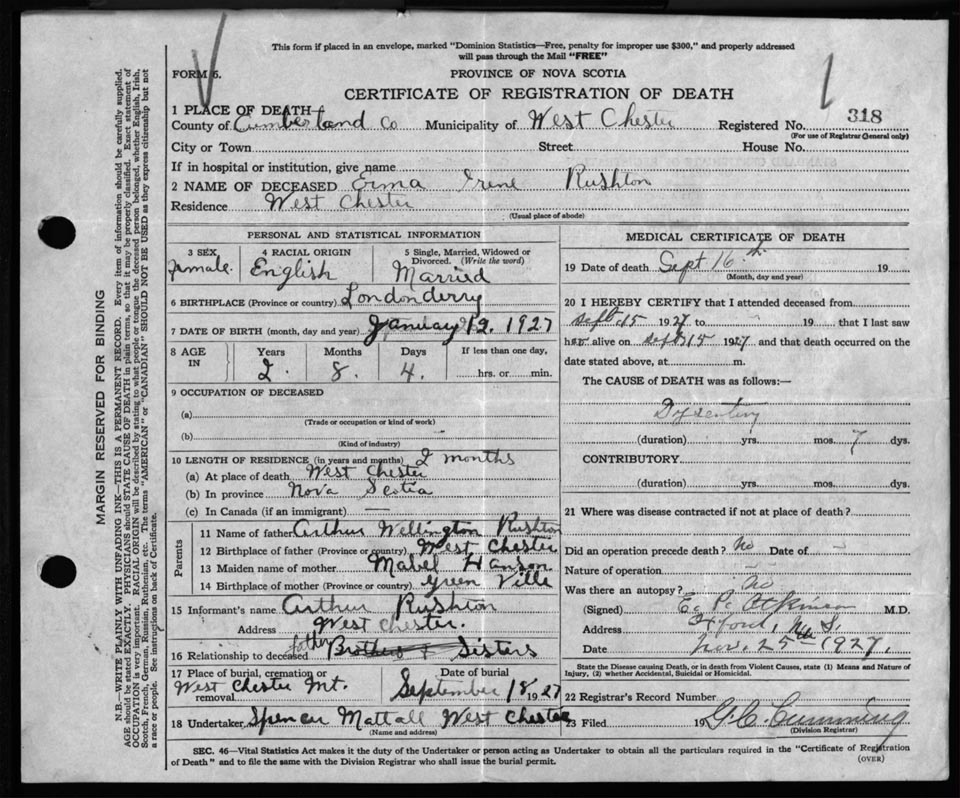 This form if placed in an envelope, marked "Dominion Statistics—Free, penalty for improper use $300," and properly addressed
will pass through the Mail "FREE"
FORM 6.
PROVINCE OF NOVA SCOTIA
CERTIFICATE OF REGISTRATION OF DEATH
1 PLACE OF DEATH—
County of Cumberland Co Municipality of West Chester Registered No. 318
(For use of Registrar General only)
City or Town Street House No.
If in hospital or institution, give name
2 NAME OF DECEASED Erma Irene Rushton
Residence West Chester
(Usual place of abode)
PERSONAL AND STATISTICAL INFORMATION
3 SEX 4 RACIAL ORIGIN 5 Single, Married, Widowed or
Divorced. (Write the word)
Female. English Married
6 BIRTHPLACE (Province or country) Londonderry
7 DATE OF BIRTH (month, day and year) January 12. 1927
8 AGE IN Years Months Days If less than one day,
2. 8. 4. hrs. or min.
9 OCCUPATION OF DECEASED
(a)
(Trade or occupation or kind of work)
(b)
(Kind of industry)
10 LENGTH OF RESIDENCE (in years and months) 2 months
(a) At place of death West Chester
(b) In province Nova Scotia
(c) In Canada (if an immigrant) —
Parents
11 Name of father Arthur Wellington Rushton
12 Birthplace of father (Province or country) West Chester
13 Maiden name of mother Mabel Hanson
14 Birthplace of mother (Province or country) Green Ville
15 Informant's name Arthur Rushton
Address West Chester.
16 Relationship to deceased father Brothers & Sisters
17 Place of burial, cremation or removal Date of burial
West Chester Mt. September 18 1927
18 Undertaker Spencer Mattall West Chester
(Name and address)
MEDICAL CERTIFICATE OF DEATH
19 Date of death Sept 16th 19
(Month, day and year)
20 I HEREBY CERTIFY that I attended deceased from
Sept. 15 1927 to 19 that I last saw
her alive on Sept 15 1927 and that death occurred on the
date stated above, at m.
The CAUSE OF DEATH was as follows:—
Dysentery
(duration) yrs. mos. 7 dys.
CONTRIBUTORY
(duration) yrs. mos. dys.
21 Where was disease contracted if not at place of death?
Did an operation precede death? No Date of
Nature of operation
Was there an autopsy? No
(Signed) E. P. Atkinson M.D.
Address Oxford, N.S.
Date Nov. 25th 1927.
State the Disease causing Death, or in death from Violent Causes, state (1) Means and Nature of
Injury, (2) whether Accidental, Suicidal or Homicidal.
22 Registrar's Record Number
23 Filed 19 G. C. Cumming
(Division Registrar)
SEC. 46—Vital Statistics Act makes it the duty of the Undertaker or person acting as Undertaker to obtain all the particulars required in the "Certificate of Registration
of Death" and to file the same with the Division Registrar who shall issue the burial permit.
(OVER)
MARGIN RESERVED FOR BINDING
N.B.—WRITE PLAINLY WITH UNFADING INK—THIS IS A PERMANENT RECORD. Every item of information should be carefully supplied.
AGE should be stated EXACTLY. PHYSICIANS should STATE CAUSE OF DEATH in plain terms, so that it may be properly classified. Exact statement of
OCCUPATION is very important. RACIAL ORIGIN will be described by stating to what people or tongue the deceased person belonged, whether English, Irish,
Scotch, French, German, Russian, Ruthenian, etc. The terms "AMERICAN" or "CANADIAN" SHOULD NOT BE USED as they express citizenship but not
a race or people. See instructions on back of Certificate.